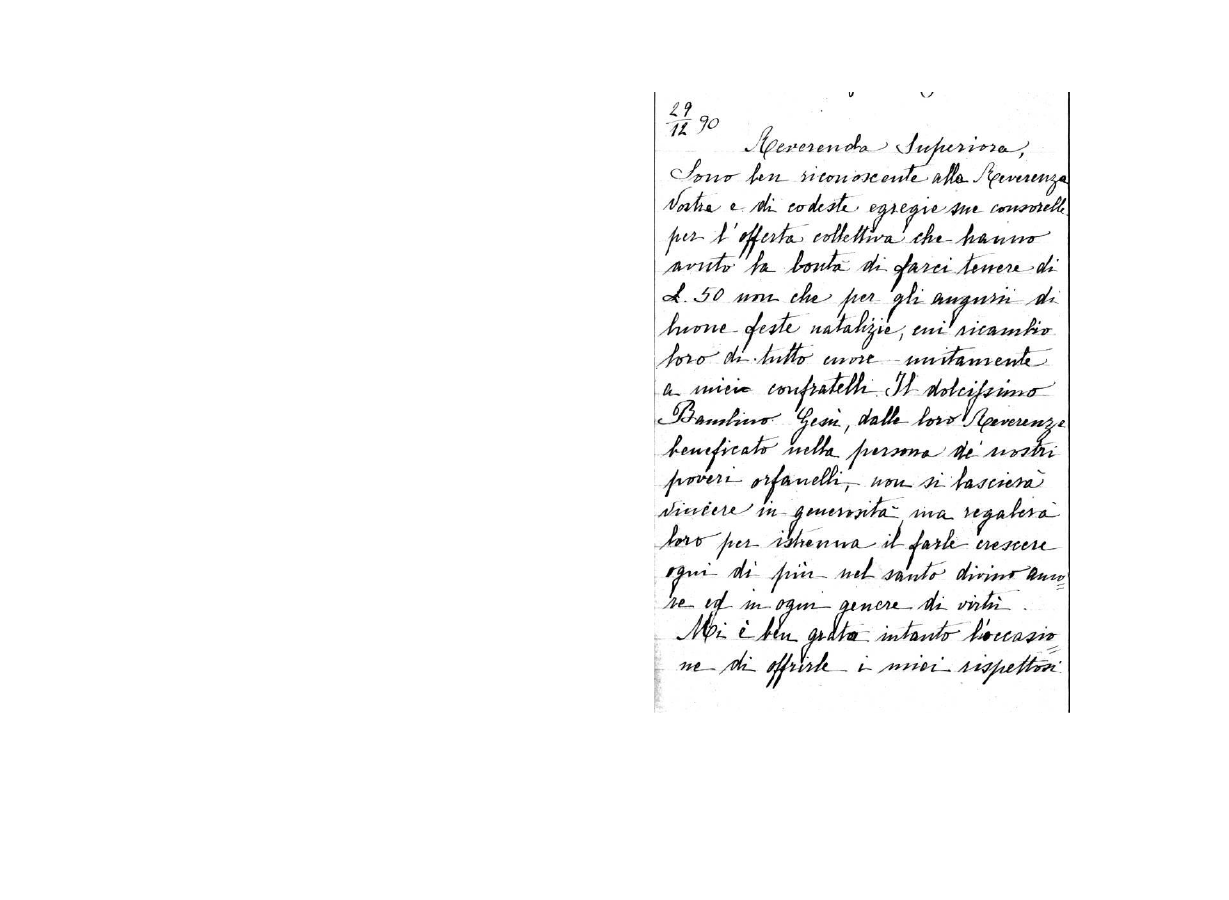 29/12 90
Reverenda Superiora,
Sono ben riconoscente alla Reverenza
Vostra e di codeste egregie sue consorelle
per l'offerta collettiva che hanno
avuto la bontà di farci tenere di
L. 50 non che per gli augurii di
buone feste natalizie, cui ricambio
loro di tutto cuore unitamente
a miei confratelli. Il dolcissimo
Bambino Gesù, dalle loro Reverenze
beneficato nella persona de' nostri
poveri orfanelli, non si lascierà
vincere in generosità, ma regalerà
loro per istrenna il farle crescere
ogni dì più nel santo divino amo=
re ed in ogni genere di virtù.
Mi è ben grata intanto l'occasio=
ne di offrirle i miei rispettosi